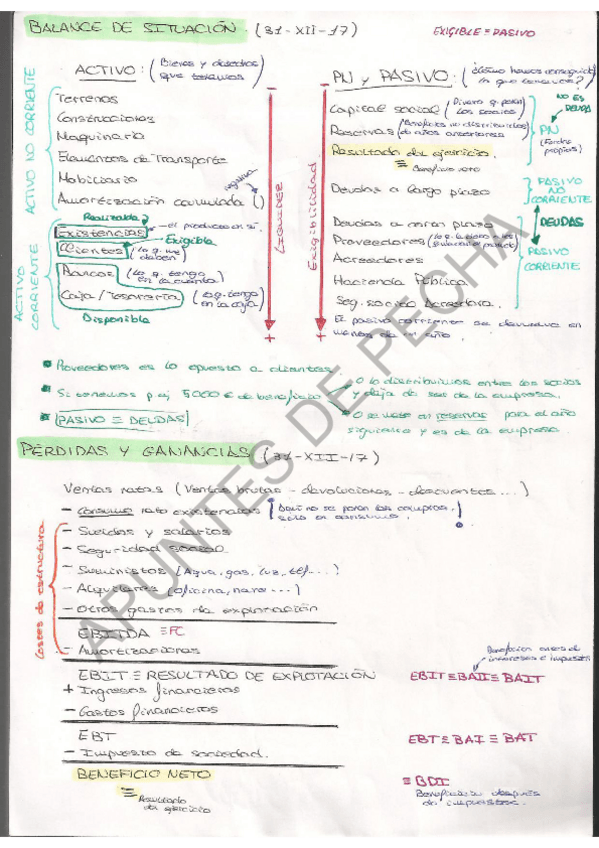 BALANCE DE SITUACIÓN. (31-XII-17)
EXIGIBLE ≡ PASIVO
ACTIVO: (Bienes y derechos que tenemos)
ACTIVO NO CORRIENTE
Terrenos
Construcciones
Maquinaria
Elementos de Transporte
Mobiliario
Amortización acumulada ( )
negativo
ACTIVO CORRIENTE
Realizable
Existencias → el producto en sí.
Exigible
Clientes (lo q. me deben)
Bancos (lo q. tengo en la cuenta)
Caja/Tesorería (lo q. tengo en la caja)
Disponible
LIQUIDEZ
+
PN y PASIVO: (¿Cómo hemos conseguido lo que tenemos?)
Capital social (Dinero q. ponen los socios)
Reservas (Beneficios no distribuidos de años anteriores)
Resultado del ejercicio.
≡ Beneficio neto
NO ES DEUDA
PN
(Fondos propios)
Deudas a largo plazo
PASIVO NO CORRIENTE
DEUDAS
Deudas a corto plazo
Proveedores
Acreedores
Hacienda Pública
Seg. social Acreedora.
PASIVO CORRIENTE
Exigibilidad
+
El pasivo corriente se devuelve en menos de un año.
Proveedores es lo opuesto a clientes
Si tenemos p.ej 5000 € de beneficio
O lo distribuimos entre los socios y deja de ser de la empresa.
O se mete en reservas para el año siguiente y es de la empresa.
PASIVO ≡ DEUDAS
PÉRDIDAS Y GANANCIAS (31-XII-17)
Ventas netas (Ventas brutas - devoluciones - descuentos...)
- Consumo neto existencias (Aquí no se ponen las compras, solo el consumo.)
Costes de estructura
- Sueldos y salarios
- Seguridad social
- Suministros (Agua, gas, luz, tel...)
- Alquileres (oficina, nave...)
- Otros gastos de explotación
EBITDA ≡ FC
- Amortizaciones
EBIT ≡ RESULTADO DE EXPLOTACIÓN
Beneficios antes de intereses e impuestos
EBIT ≡ BAII ≡ BAIT
+ Ingresos financieros
- Gastos financieros
EBT
EBT ≡ BAI ≡ BAT
- Impuesto de sociedad.
BENEFICIO NETO
≡ Resultado del ejercicio
≡ BDI
Beneficio después de impuestos.
APUNTES DE PECHA